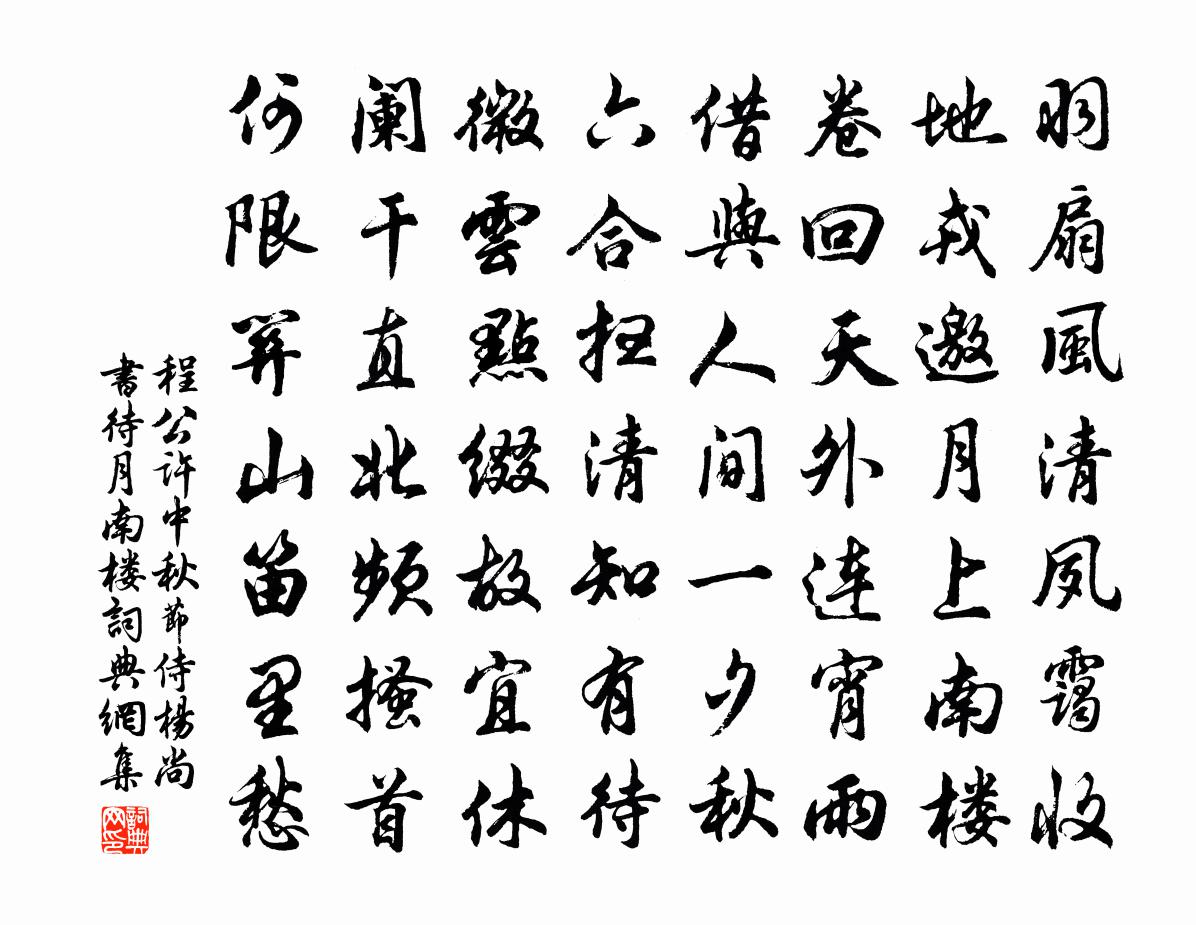 羽扇風清夙霭收
地戎邀月上南楼
卷回天外连宵雨
借與人间一夕秋
六合扫清知有待
微雲點缀故宜休
阑干直北频搔首
何限关山笛里愁
程公许中秋節侍楊尚
書待月南楼詞典網集
詞典
网印